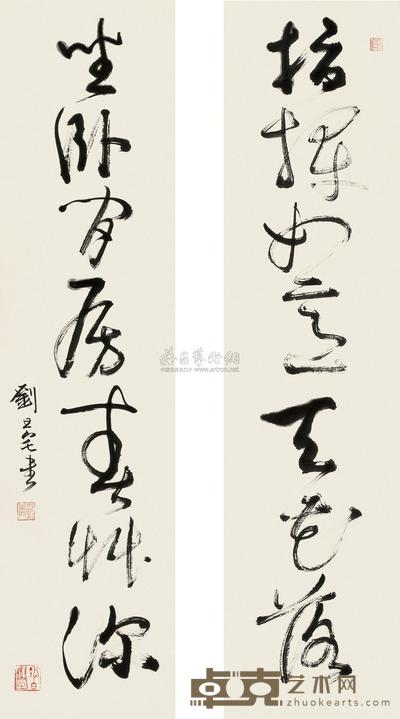 指揮如意天花落
坐卧閒房春艸深
劉旦宅書
雅昌藝術網
卓克艺术网
www.zhuokearts.com